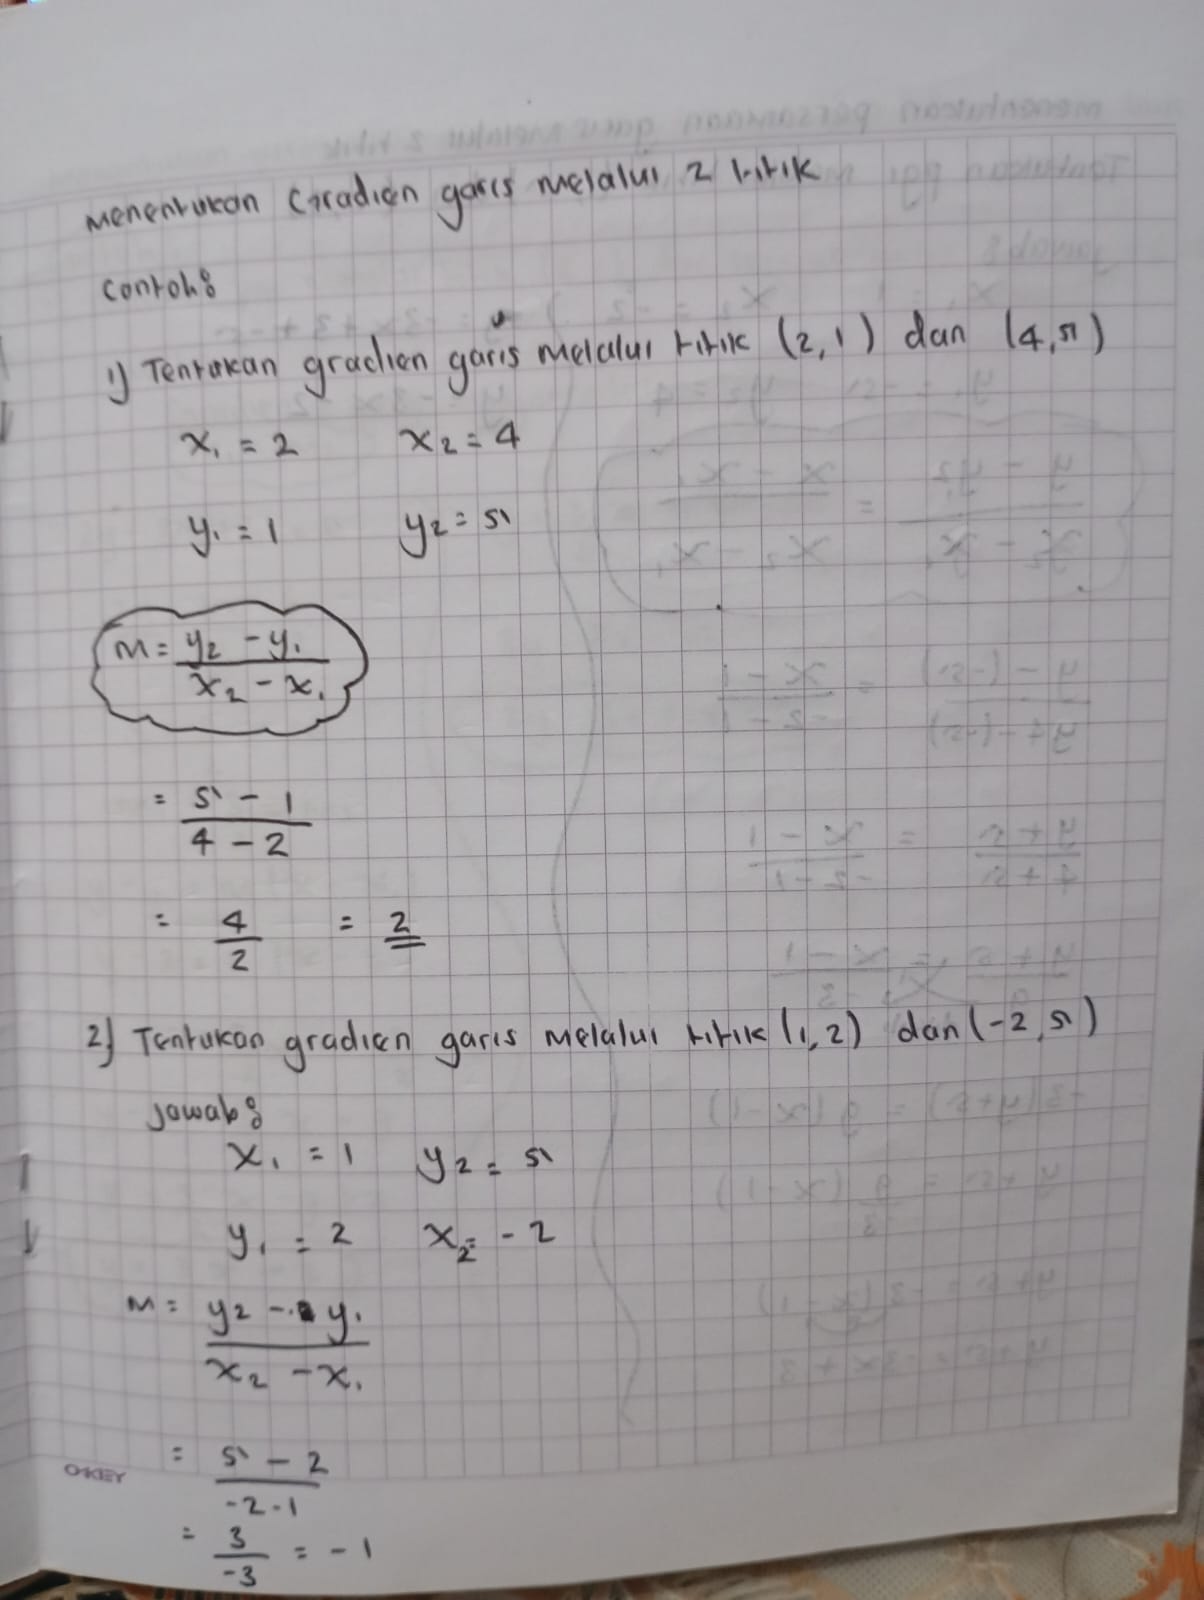 Menentukan Gradien garis melalui 2 titik
Contoh:
1) Tentukan gradien garis melalui titik (2,1) dan (4,5)
x₁ = 2 x₂ = 4
y₁ = 1 y₂ = 5
m = y₂ - y₁
x₂ - x₁
= 5 - 1
4 - 2
= 4 = 2
2
2) Tentukan gradien garis melalui titik (1,2) dan (-2,5)
Jawab:
x₁ = 1 y₂ = 5
y₁ = 2 x₂ = -2
m = y₂ - y₁
x₂ - x₁
= 5 - 2
-2-1
= 3 = -1
-3
O-KEY